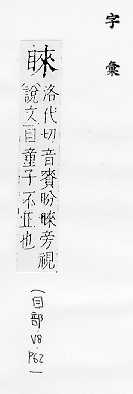 字彙
睞
洛代切音賚盼睞旁視
說文目童子不正也
(目部
V8
P62)